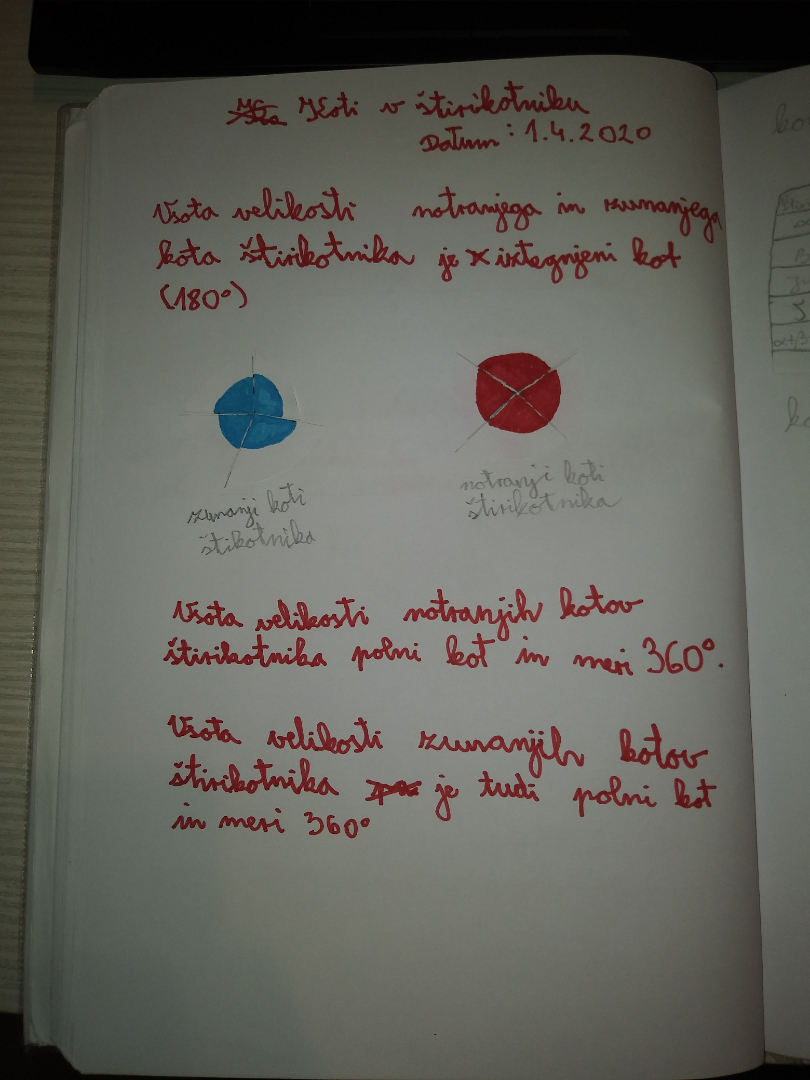 Koti v štirikotniku
Datum: 1.4.2020
Vsota velikosti notranjega in zunanjega
kota štirikotnika je iztegnjeni kot
(180°)
zunanji koti
štikotnika
notranji koti
štirikotnika
Vsota velikosti notranjih kotov
štirikotnika polni kot in meri 360°.
Vsota velikosti zunanjih kotov
štirikotnika je tudi polni kot
in meri 360°